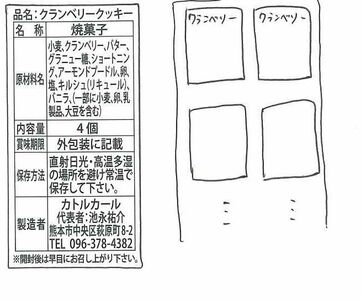 品名:クランベリークッキー
名 称 焼菓子
原材料名
小麦,クランベリー,バター,
グラニュー糖,ショートニン
グ,アーモンドプードル,卵,
塩,キルシュ(リキュール),
バニラ,(一部に小麦,卵,乳
製品,大豆を含む)
内容量 4個
賞味期限 外包装に記載
保存方法
直射日光・高温多湿
の場所を避け常温で
保存して下さい。
製造者
カトルカール
代表者:池永祐介
熊本市中央区萩原町8-2
TEL 096-378-4382
※開封後は早目にお召し上がり下さい。
クランベリー
クランベリー